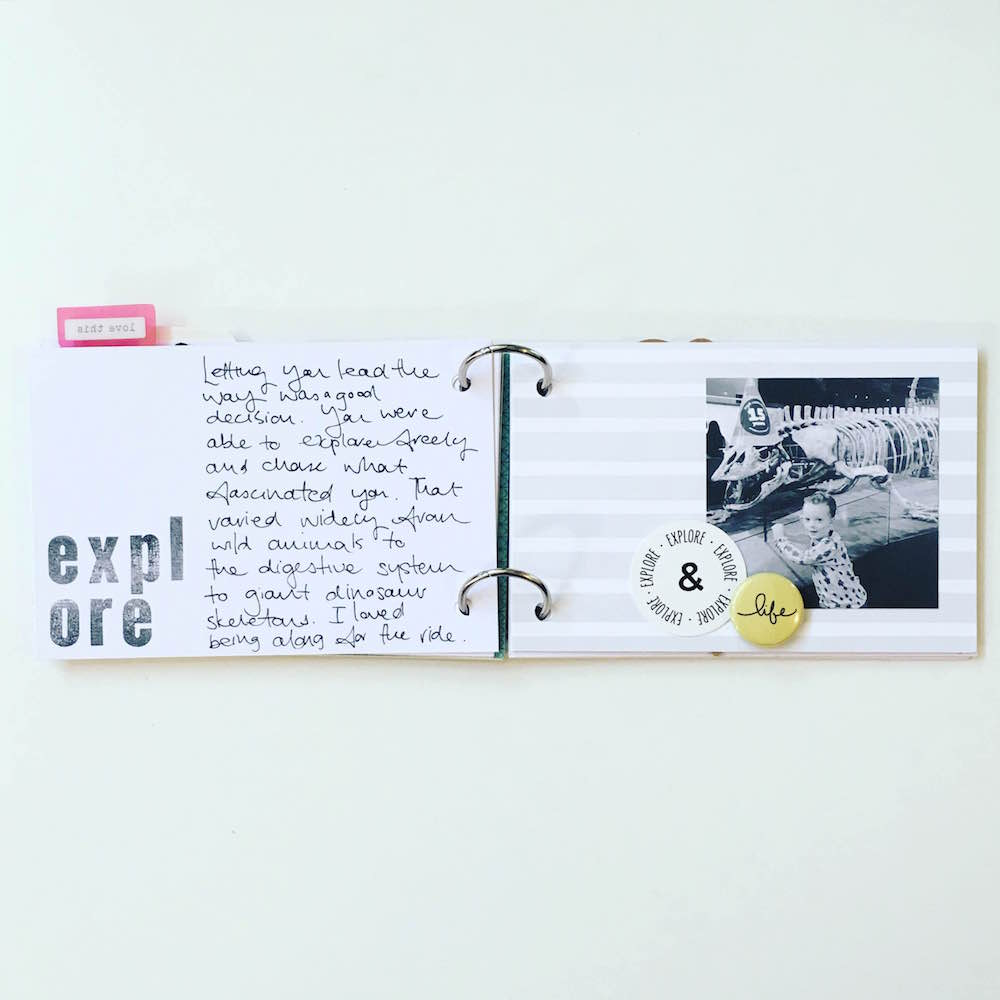 love this
Letting you lead the
way was a good
decision. You were
able to explore freely
and chase what
fascinated you. That
varied widely from
wild animals to
the digestive system
to giant dinosaur
skeletons. I loved
being along for the ride.
expl
ore
15
EXPLORE · EXPLORE · EXPLORE · EXPLORE · EXPLORE ·
&
life